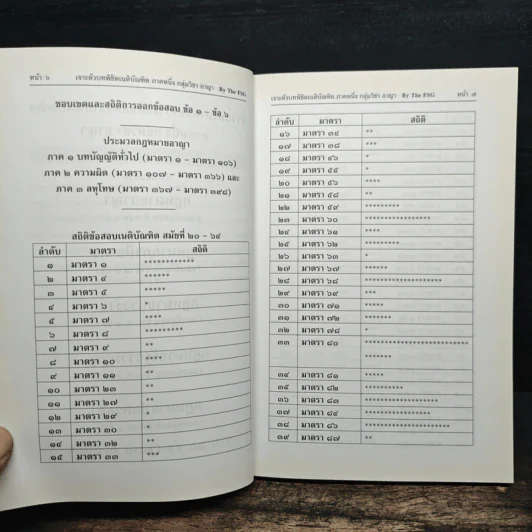 หน้า ๖ เจาะตัวบทพิชิตเนติบัณฑิต ภาคหนึ่ง กลุ่มวิชา อาญา By The FSG
ขอบเขตและสถิติการออกข้อสอบ ข้อ ๑ - ข้อ ๖
ประมวลกฎหมายอาญา
ภาค ๑ บทบัญญัติทั่วไป (มาตรา ๑ - มาตรา ๑๐๖)
ภาค ๒ ความผิด (มาตรา ๑๐๗ - มาตรา ๓๖๖) และ
ภาค ๓ ลหุโทษ (มาตรา ๓๖๗ - มาตรา ๓๙๘)
สถิติข้อสอบเนติบัณฑิต สมัยที่ ๒๐ - ๖๔
ลำดับ มาตรา สถิติ
๑ มาตรา ๑ ************
๒ มาตรา ๔ ******
๓ มาตรา ๕ *****
๔ มาตรา ๖ *
๕ มาตรา ๗ ****
๖ มาตรา ๘ *********
๗ มาตรา ๙ **
๘ มาตรา ๑๐ ****
๙ มาตรา ๑๑ **
๑๐ มาตรา ๒๓ **
๑๑ มาตรา ๒๗ **
๑๒ มาตรา ๒๙ *
๑๓ มาตรา ๓๐ *
๑๔ มาตรา ๓๒ **
๑๕ มาตรา ๓๓ ***
เจาะตัวบทพิชิตเนติบัณฑิต ภาคหนึ่ง กลุ่มวิชา อาญา By The FSG หน้า ๗
ลำดับ มาตรา สถิติ
๑๖ มาตรา ๓๔ **
๑๗ มาตรา ๓๘ ***
๑๘ มาตรา ๔๖ *
๑๙ มาตรา ๕๕ *
๒๐ มาตรา ๕๖ ****
๒๑ มาตรา ๕๘ **
๒๒ มาตรา ๕๙ *********
๒๓ มาตรา ๖๐ *****************
๒๔ มาตรา ๖๑ ****
๒๕ มาตรา ๖๒ *********
๒๖ มาตรา ๖๓ *
๒๗ มาตรา ๖๗ ******
๒๘ มาตรา ๖๘ ********************
๒๙ มาตรา ๖๙ ***
๓๐ มาตรา ๗๑ *****
๓๑ มาตรา ๗๒ *******
๓๒ มาตรา ๗๘ *
๓๓ มาตรา ๘๐ ***************************
*******
๓๔ มาตรา ๘๑ *****
๓๕ มาตรา ๘๒ **********
๓๖ มาตรา ๘๓ *******************
๓๗ มาตรา ๘๔ *****************
๓๘ มาตรา ๘๖ **********************
๓๙ มาตรา ๘๗ **